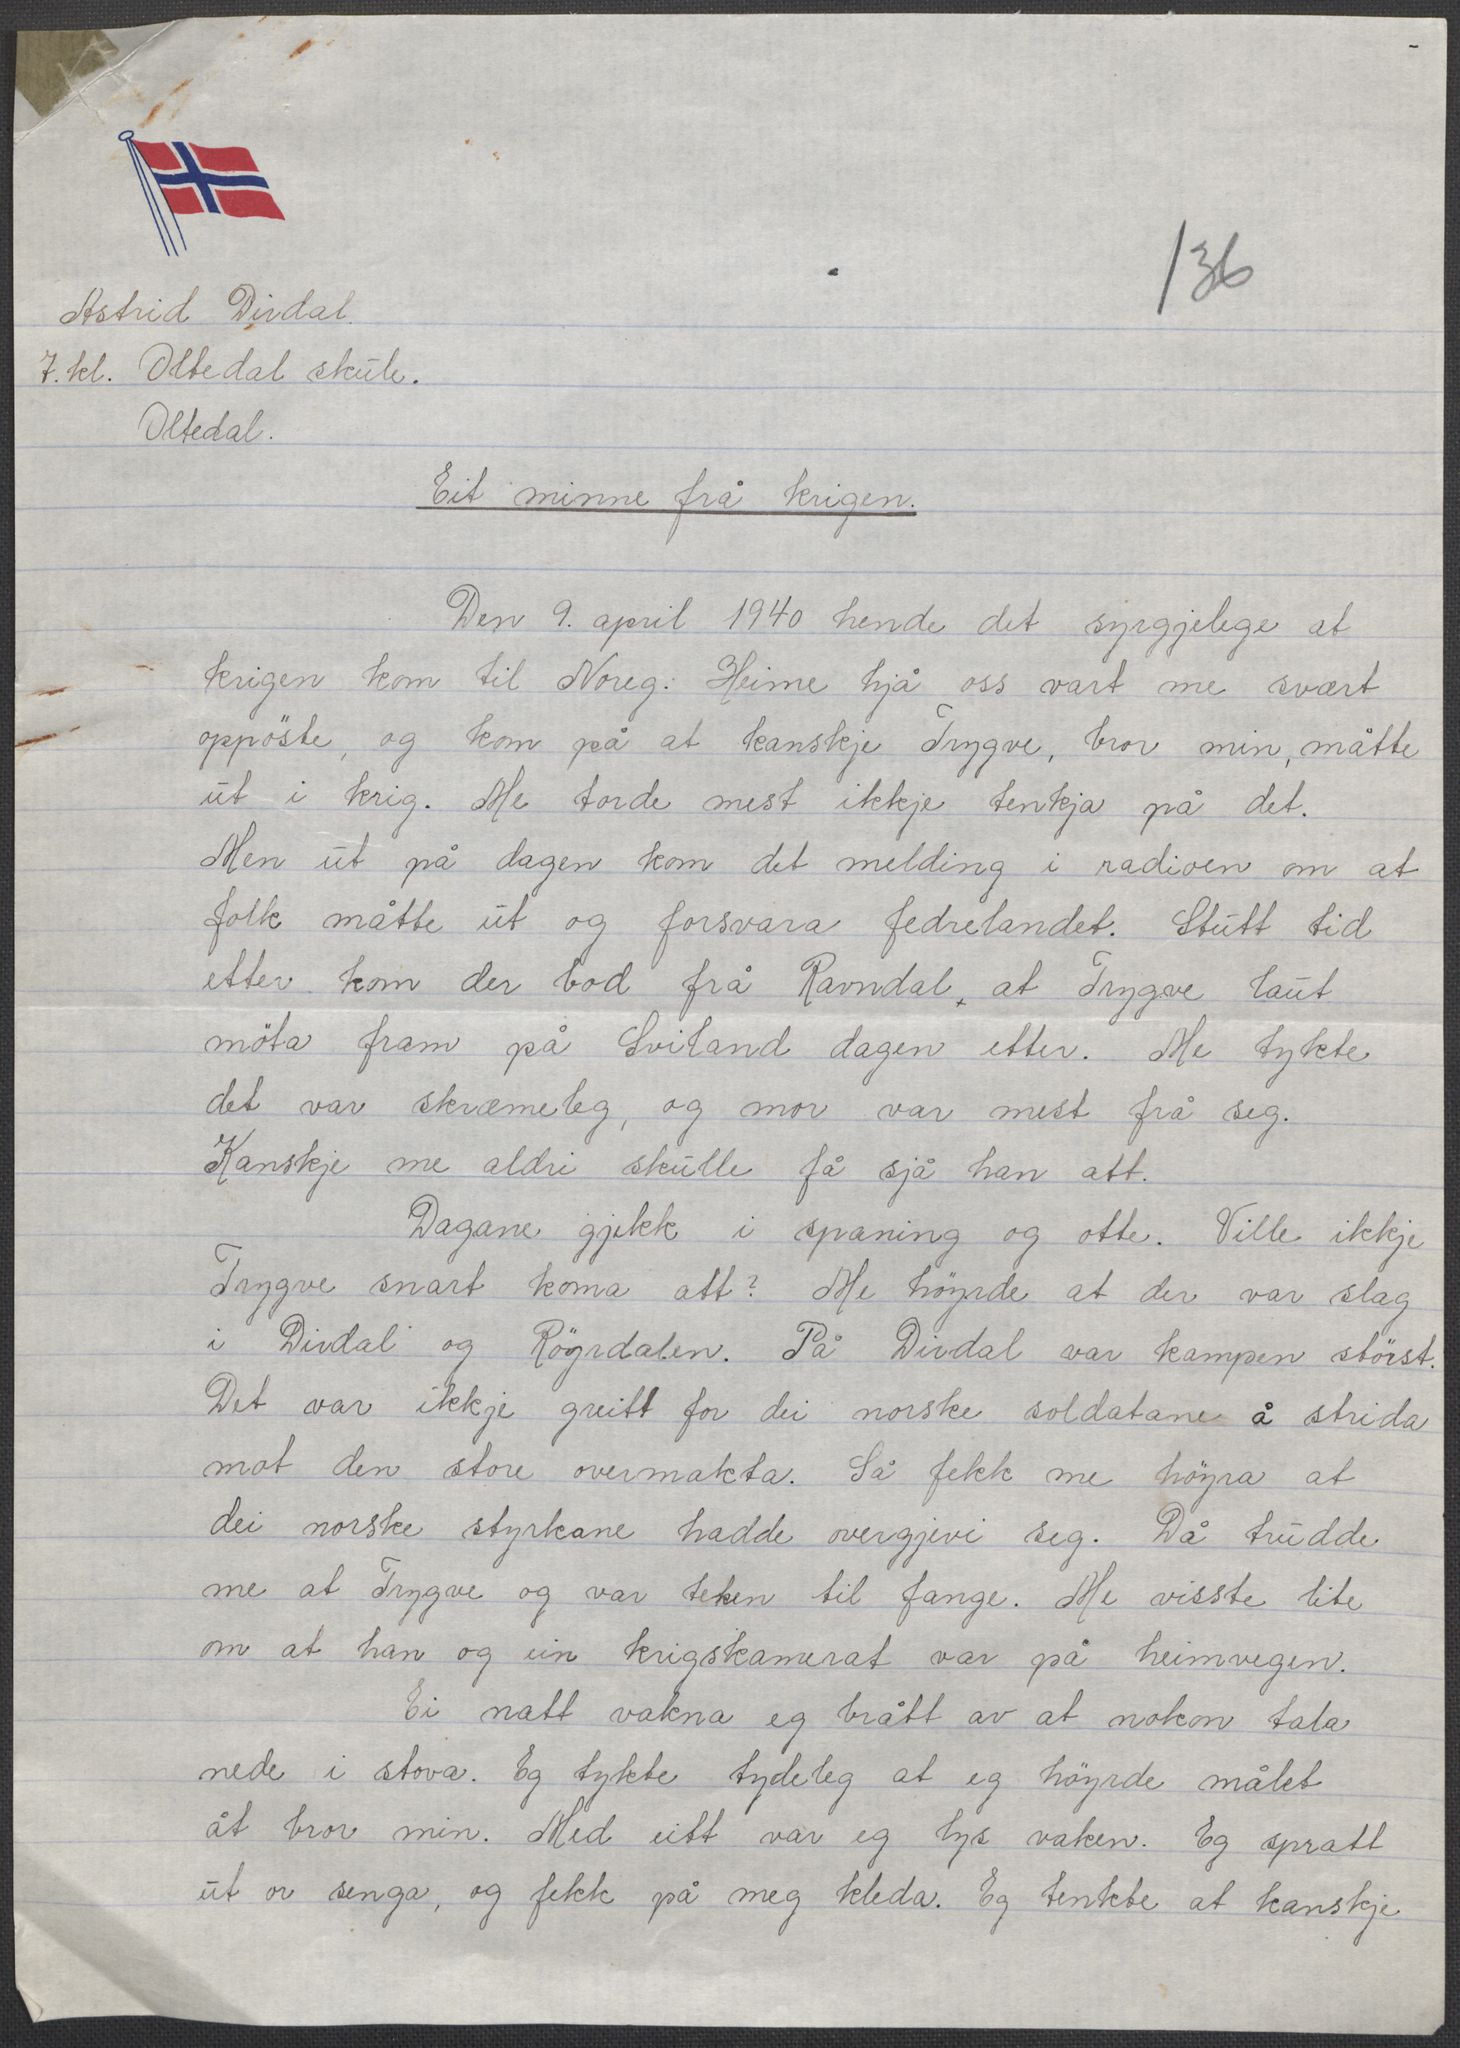 136
Astrid Dirdal.
7. kl. Oltedal skule.
Oltedal.
Eit minne frå krigen.
Den 9. april 1940 hende det syrgjelege at
krigen kom til Noreg. Heime hjå oss vart me svært
oppöste, og kom på at kanskje Trygve, bror min, måtte
ut i krig. Me torde mest ikkje tenkja på det.
Men ut på dagen kom det melding i radioen om at
folk måtte ut og forsvara fedrelandet. Stutt tid
etter kom der bod frå Ravndal, at Trygve laut
möta fram på Sviland dagen etter. Me tykte
det var skræmeleg, og mor var mest frå seg.
Kanskje me aldri skulle få sjå han att.
Dagane gjekk i spaning og otte. Ville ikkje
Trygve snart koma att? Me höyrde at der var slag
i Dirdal og Röyrdalen. På Dirdal var kampen störst.
Det var ikkje greitt for dei norske soldatane å strida
mot den store overmakta. Så fekk me höyra at
dei norske styrkane hadde overgjevi seg. Då trudde
me at Trygve og var teken til fange. Me visste lite
om at han og ein krigskamerat var på heimvegen.
Ei natt vakna eg brått av at nokon tala
nede i stova. Eg tykte tydeleg at eg höyrde målet
åt bror min. Med eitt var eg lys vaken. Eg spratt
ut or senga, og fekk på meg kleda. Eg tenkte at kanskje